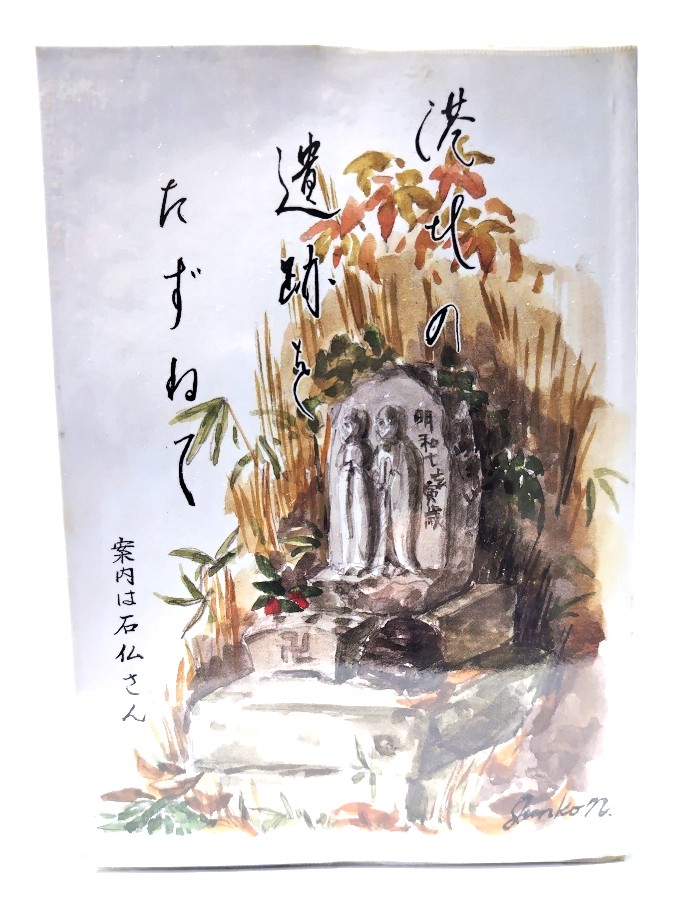 港北の
遺跡を
たずねて
案内は石仏さん
明和七
寅歳
卍
Junko N.